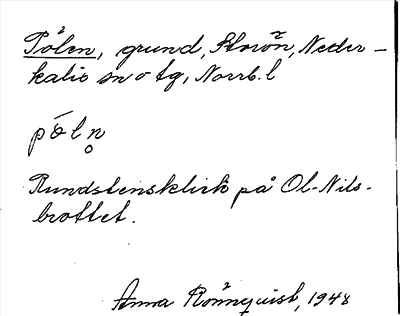 Pölen, grund, Storön, Neder-
kalix sn o tg, Norrb. l
pöln̥
Rundstensklirk på Ol-Nils-
brottet.
Anna Rönnquist, 1948